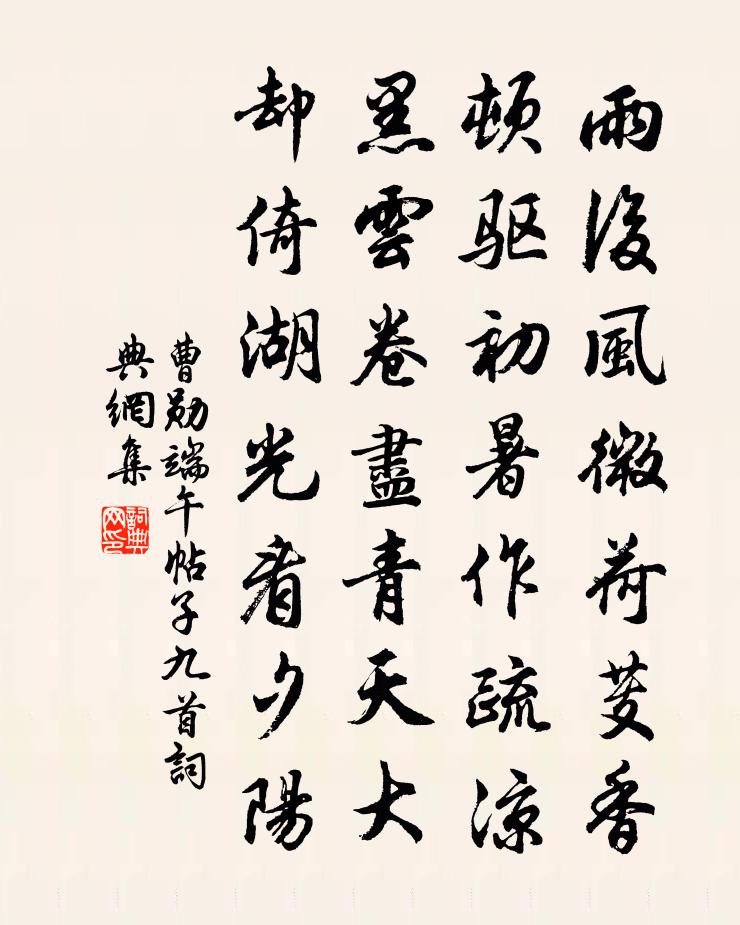 雨後風微荷芰香
頓驱初暑作疏涼
黑雲卷盡青天大
却倚湖光看夕陽
曹勛端午帖子九首詞
典網集
詞典
网印